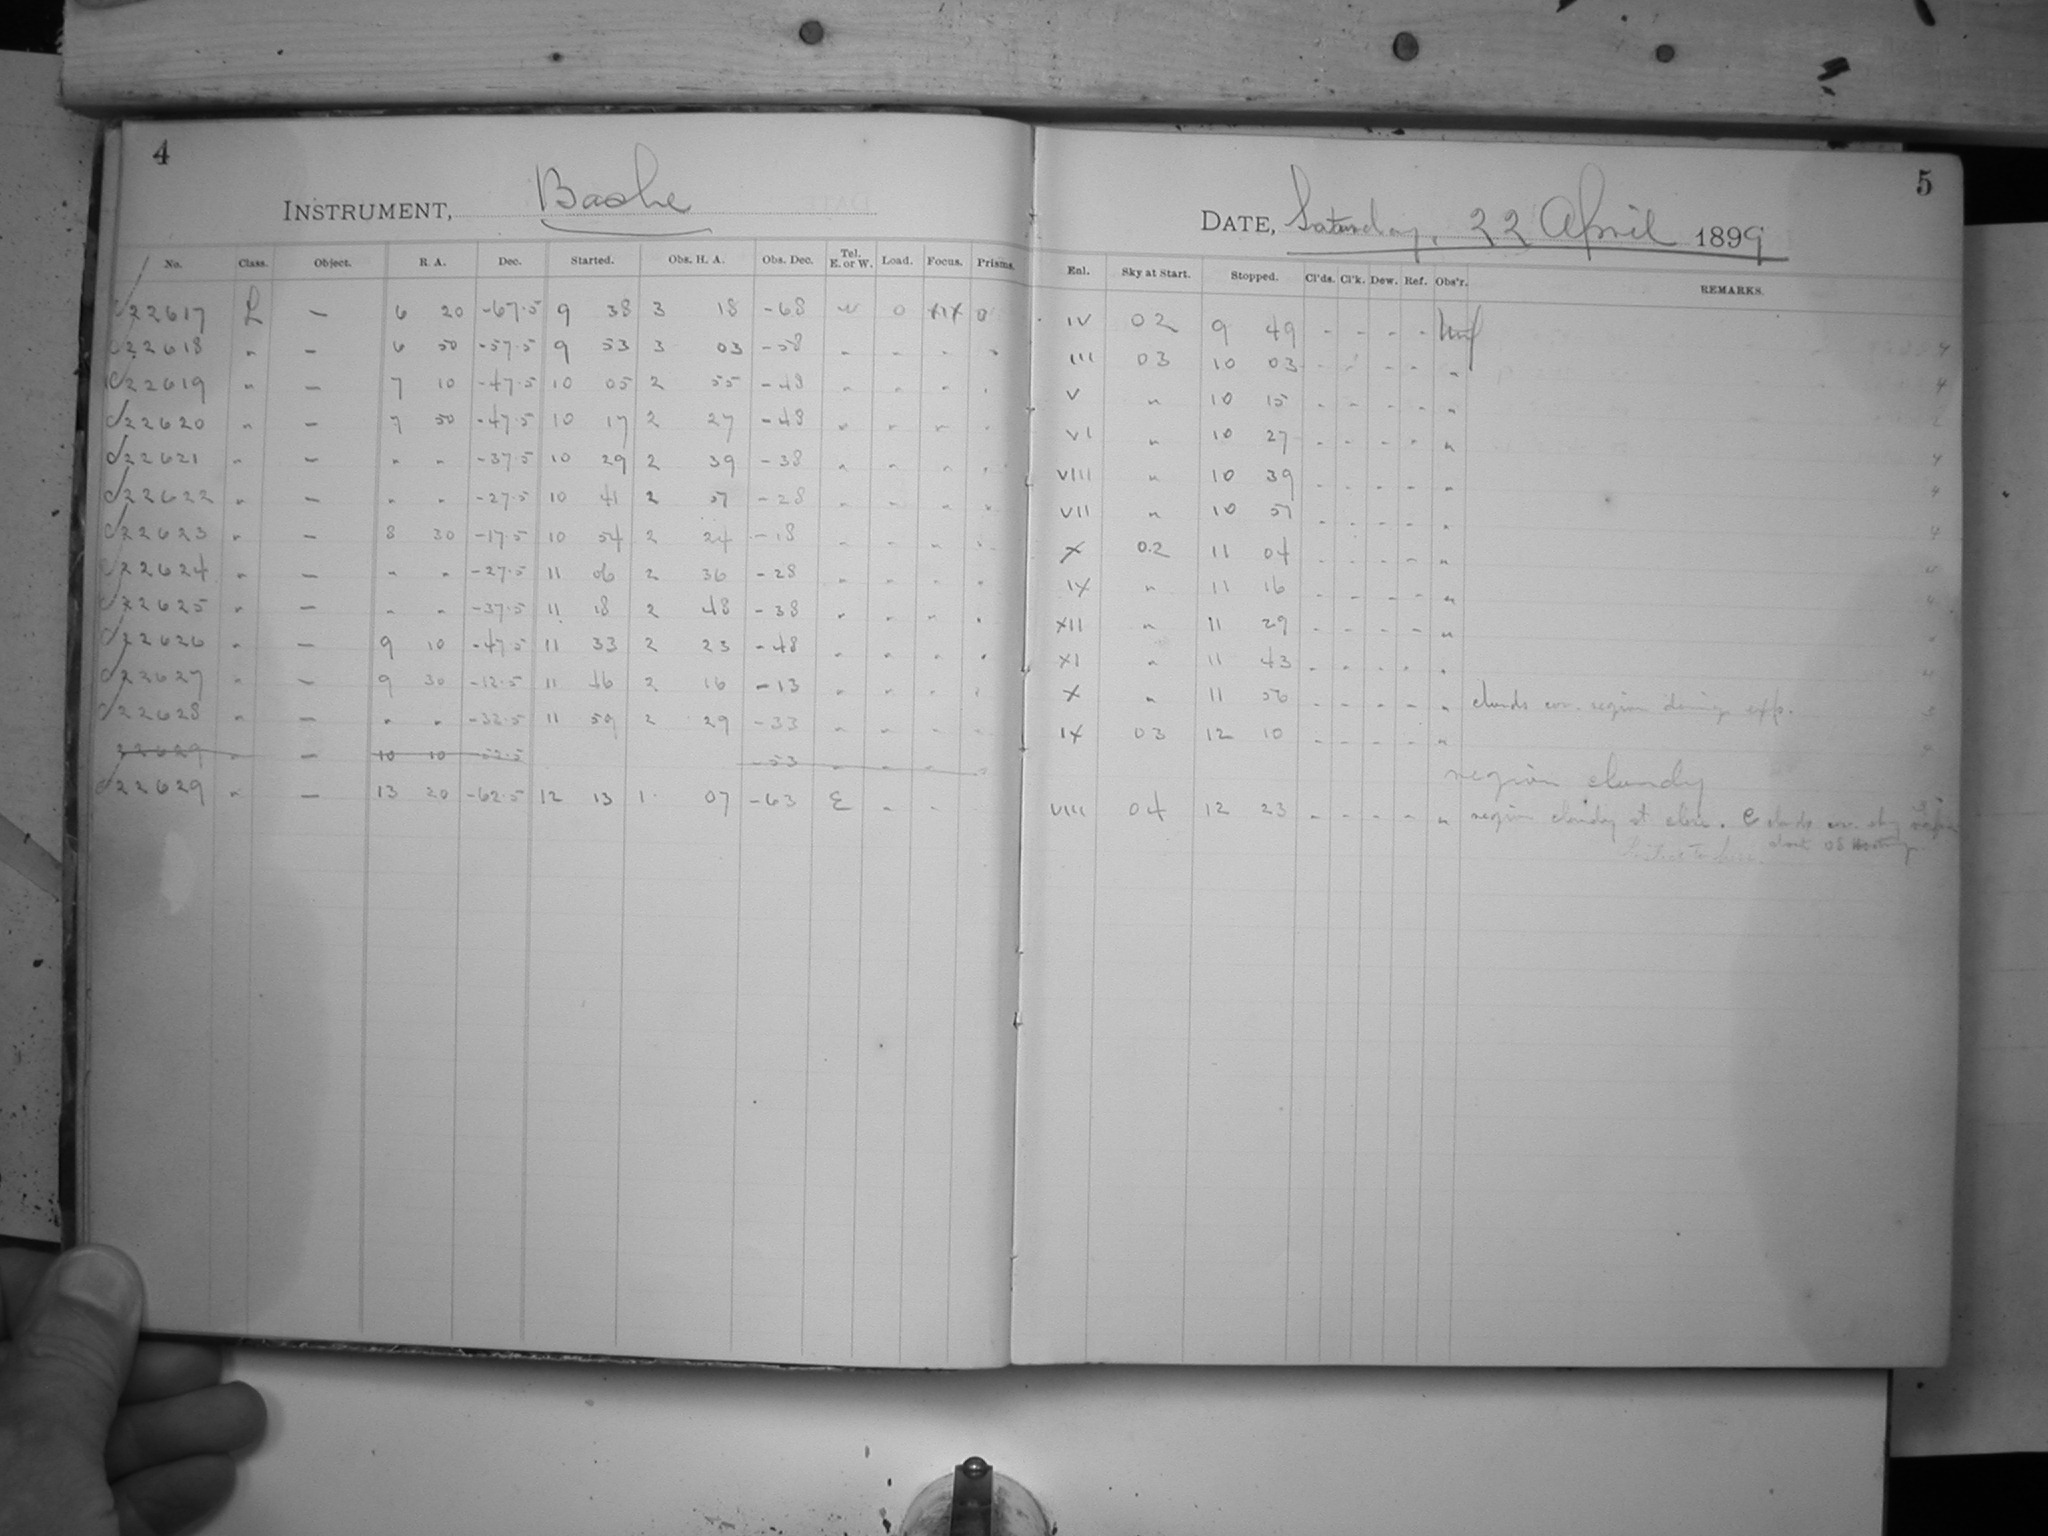 4
INSTRUMENT, Bache
No. Class. Object. R. A. Dec. Started. Obs. H. A. Obs. Dec. Tel. E. or W. Load. Focus. Prisms.
22617 L — 6 20 -67.5 9 38 3 18 -68 w 0 XIX 0
22618 " — 6 50 -57.5 9 53 3 03 -58 " " " "
22619 " — 7 10 -47.5 10 05 2 55 -48 " " " "
22620 " — 7 50 -47.5 10 17 2 27 -48 " " " "
22621 " — " " -37.5 10 29 2 39 -38 " " " "
22622 " — " " -27.5 10 41 2 51 -28 " " " "
22623 " — 8 30 -17.5 10 54 2 24 -18 " " " "
22624 " — " " -27.5 11 06 2 36 -28 " " " "
22625 " — " " -37.5 11 18 2 48 -38 " " " "
22626 " — 9 10 -47.5 11 33 2 23 -48 " " " "
22627 " — 9 30 -12.5 11 46 2 16 -13 " " " "
22628 " — " " -32.5 11 59 2 29 -33 " " " "
22629 " — 10 10 -52.5 -53 " " " "
22629 " — 13 20 -62.5 12 13 1 07 -63 E " "
5
DATE, Saturday, 22 April 1899
Enl. Sky at Start. Stopped. Cl'ds. Cl'k. Dew. Ref. Obs'r. REMARKS.
IV 02 9 49 - - - -
III 03 10 03 - - - - "
V " 10 15 - - - - "
VI " 10 27 - - - - "
VIII " 10 39 - - - - "
VII " 10 51 - - - - "
X 02 11 04 - - - - "
IX " 11 16 - - - - "
XII " 11 29 - - - - "
XI " 11 43 - - - - "
X " 11 56 - - - - " clouds cov. region during exp.
IX 03 12 10 - - - - "
region cloudy
VIII 04 12 23 - - - - " region cloudy at close. clouds cov. sky